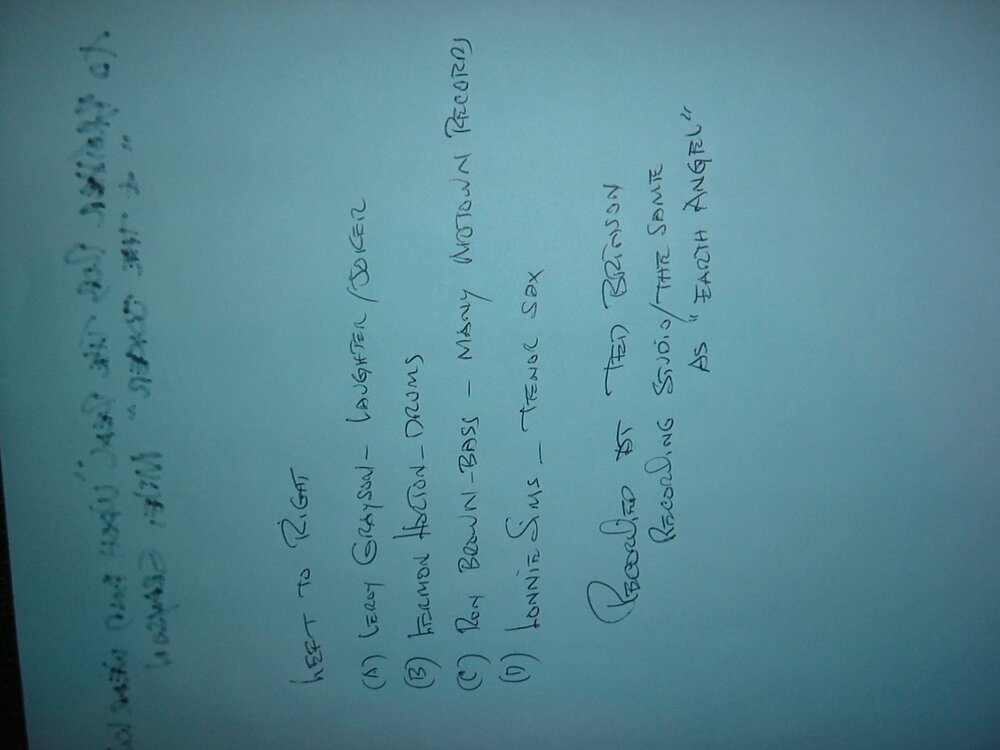 LEFT TO RIGHT
(A) LEROY GRAYSON - LAUGHTER/JOKER
(B) LERMON HORTON - DRUMS
(C) RON BROWN - BASS - MANY MOTOWN RECORDS
(D) LONNIE SIMS - TENOR SAX
RECORDED AT TED BRINSON
RECORDING STUDIO/THE SAME
AS "EARTH ANGEL"